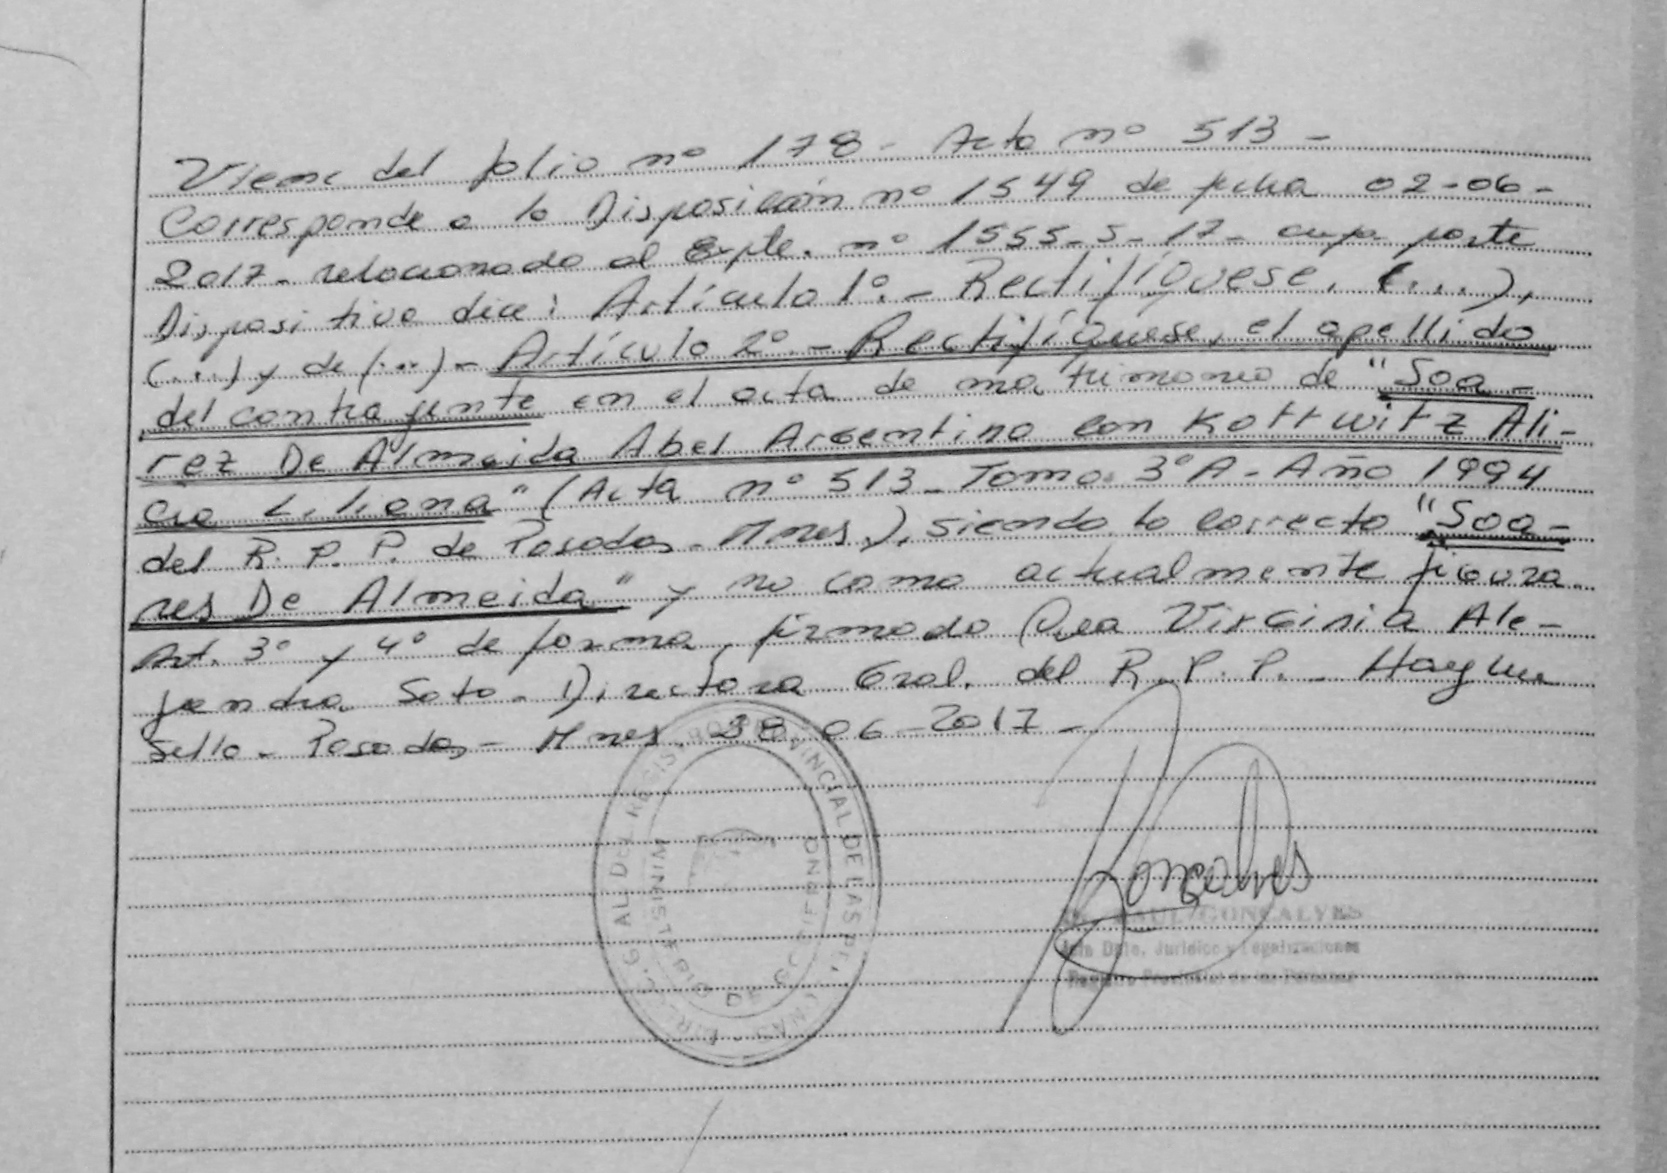 Viene del folio nº 178 - Acta nº 513 -
Corresponde a la Disposición nº 1549 de fecha 02-06-
2017- relacionado al Expte. nº 1555-S-17- cuya parte
Dispositiva dice: Artículo 1º.- Rectifíquese, (...),
(...) y de (...) - Artículo 2º.- Rectifíquese, el apellido
del contrayente en el acta de matrimonio de "Soa-
rez De Almeida Abel Argentino con Kottwitz Ali-
cia Liliana" (Acta nº 513 - Tomo 3º A - Año 1994
del R. P. P. de Posadas - Mnes.), siendo lo correcto "Soa-
res De Almeida" y no como actualmente figura.
Art. 3º y 4º de forma, firmado Dra Virginia Ale-
jandra Soto - Directora Gral. del R. P. P. - Hay un
Sello - Posadas - Mnes, 28-06-2017 -
DIRECC. GRAL. DEL REGISTRO PROVINCIAL DE LAS PERSONAS
MINISTERIO DE GOBIERNO
Goncalves
RAUL GONCALVES
Jefe Dpto. Jurídico y Legalizaciones
Registro Provincial de las Personas